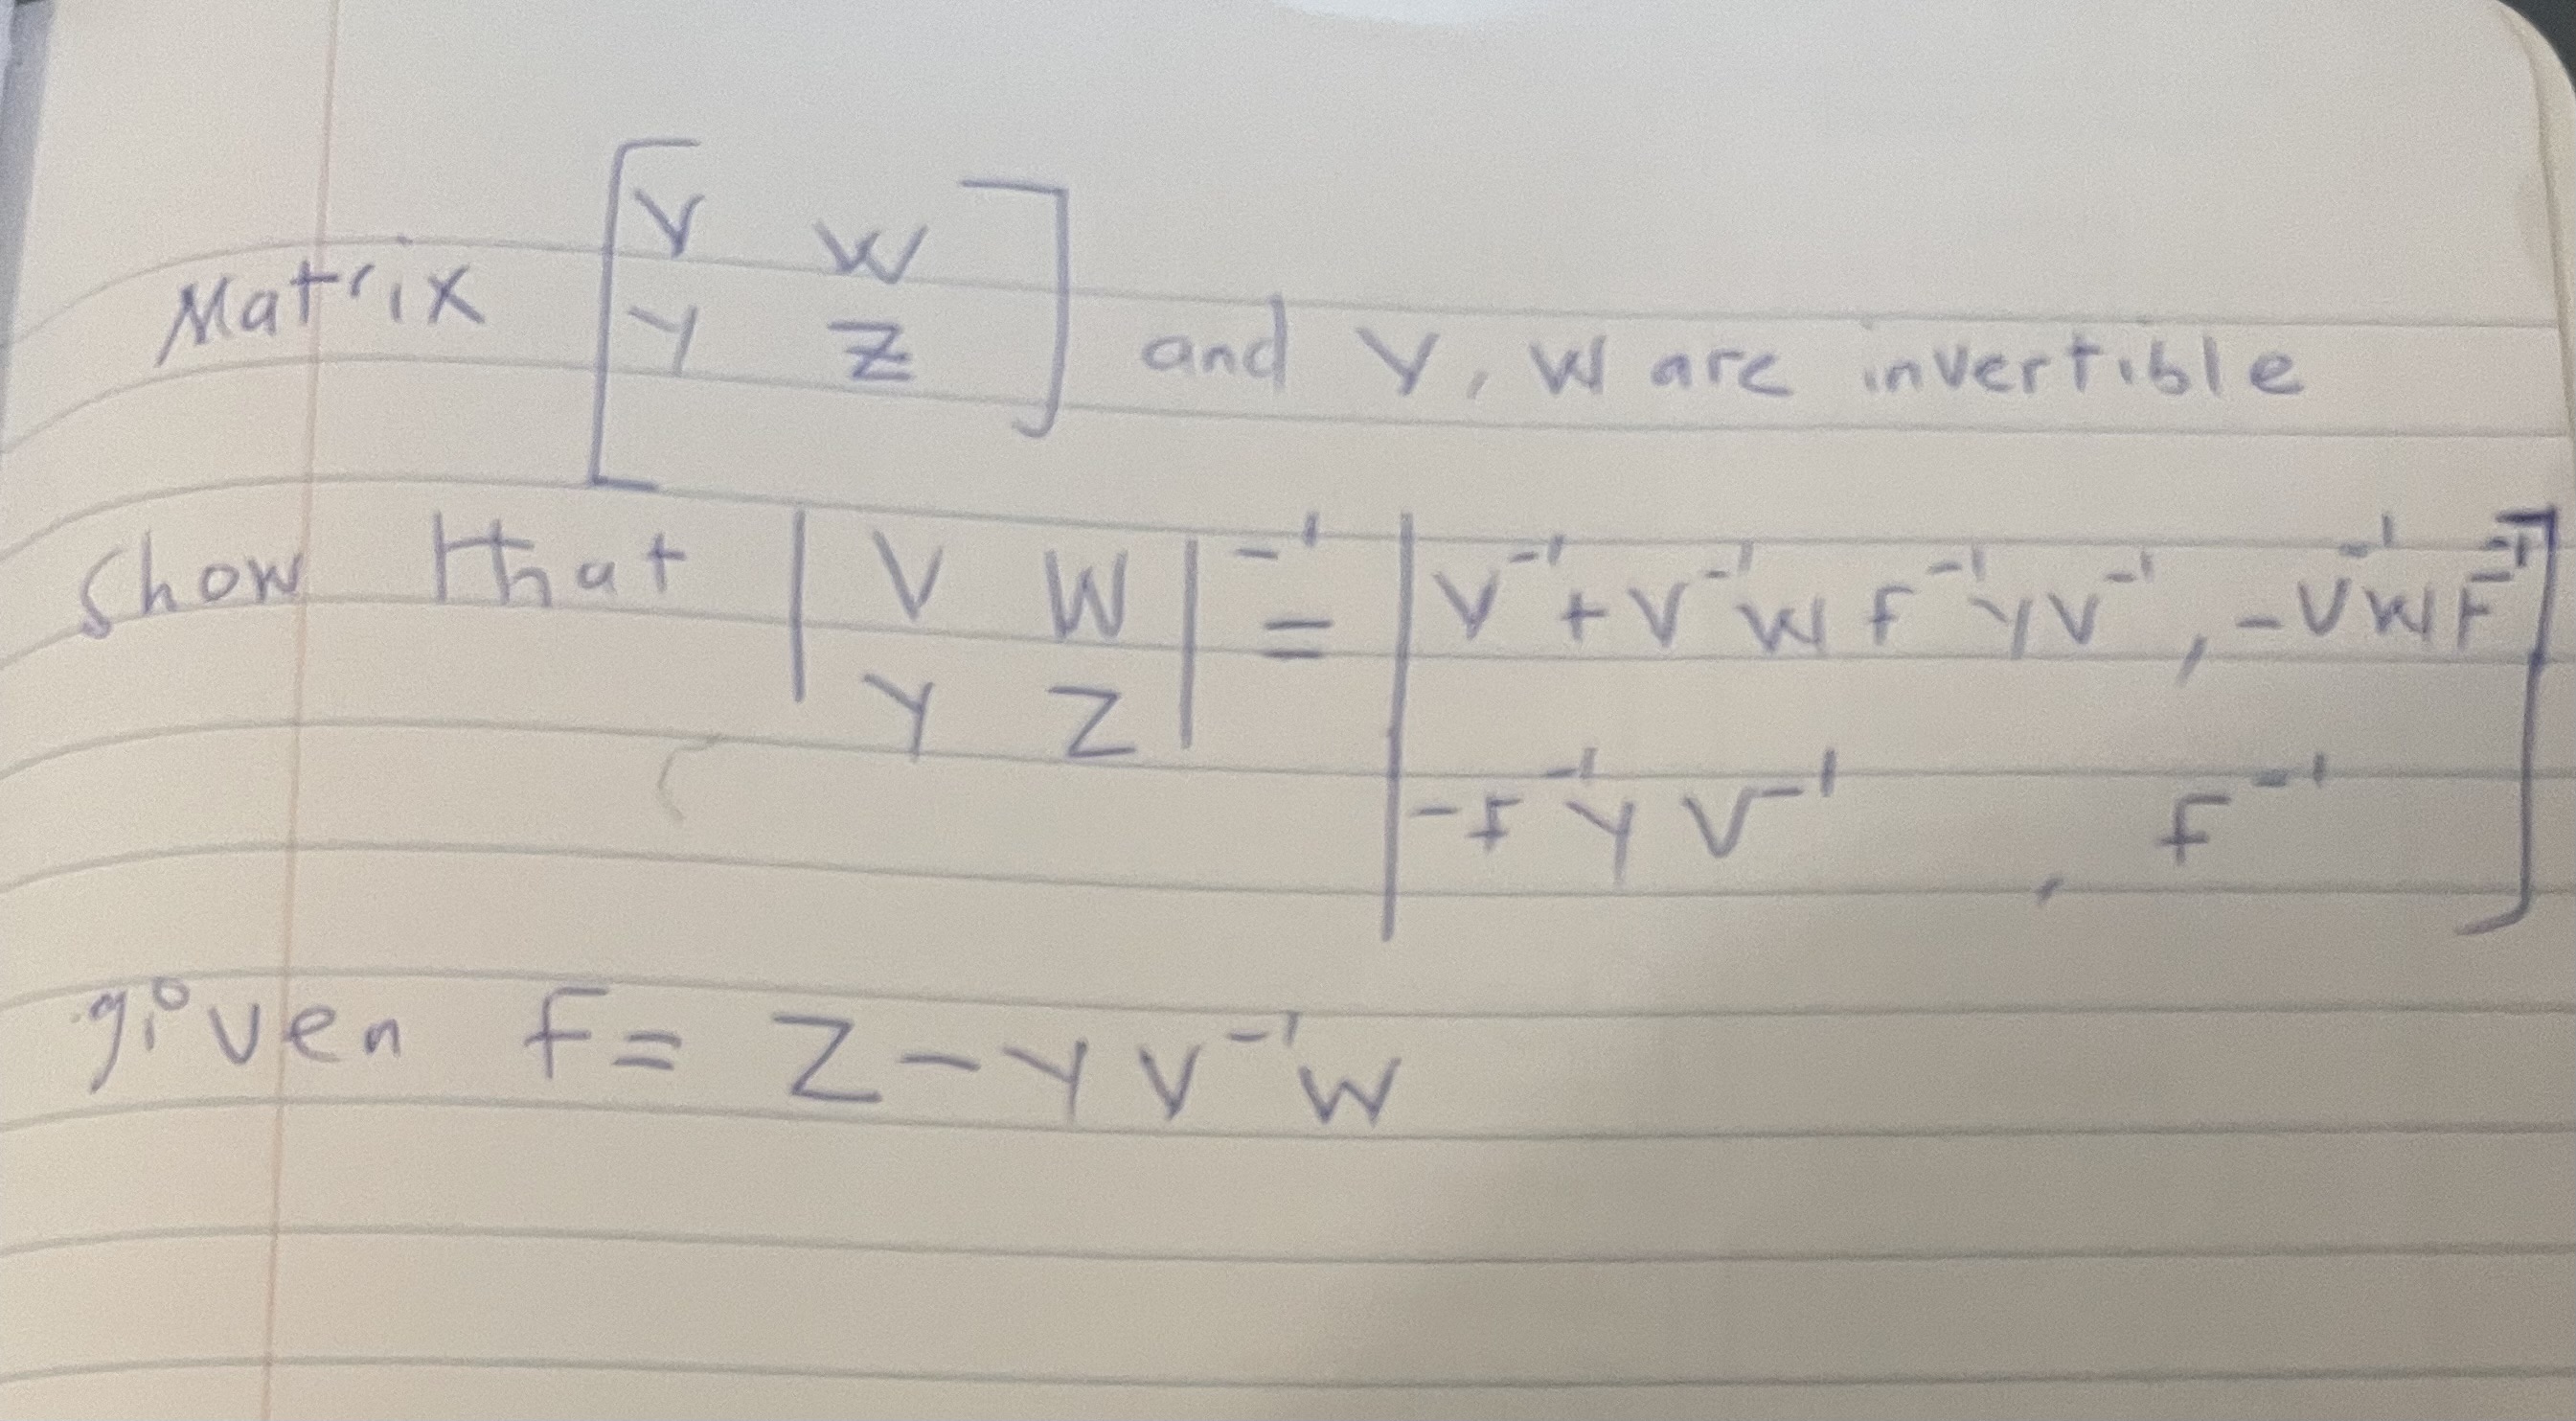 Matrix [V W
Y Z] and Y, W are invertible
Show that |V W
Y Z|⁻¹ = |V⁻¹+V⁻¹WF⁻¹YV⁻¹, -V⁻¹WF⁻¹
-F⁻¹YV⁻¹, F⁻¹]
given F= Z-YV⁻¹W